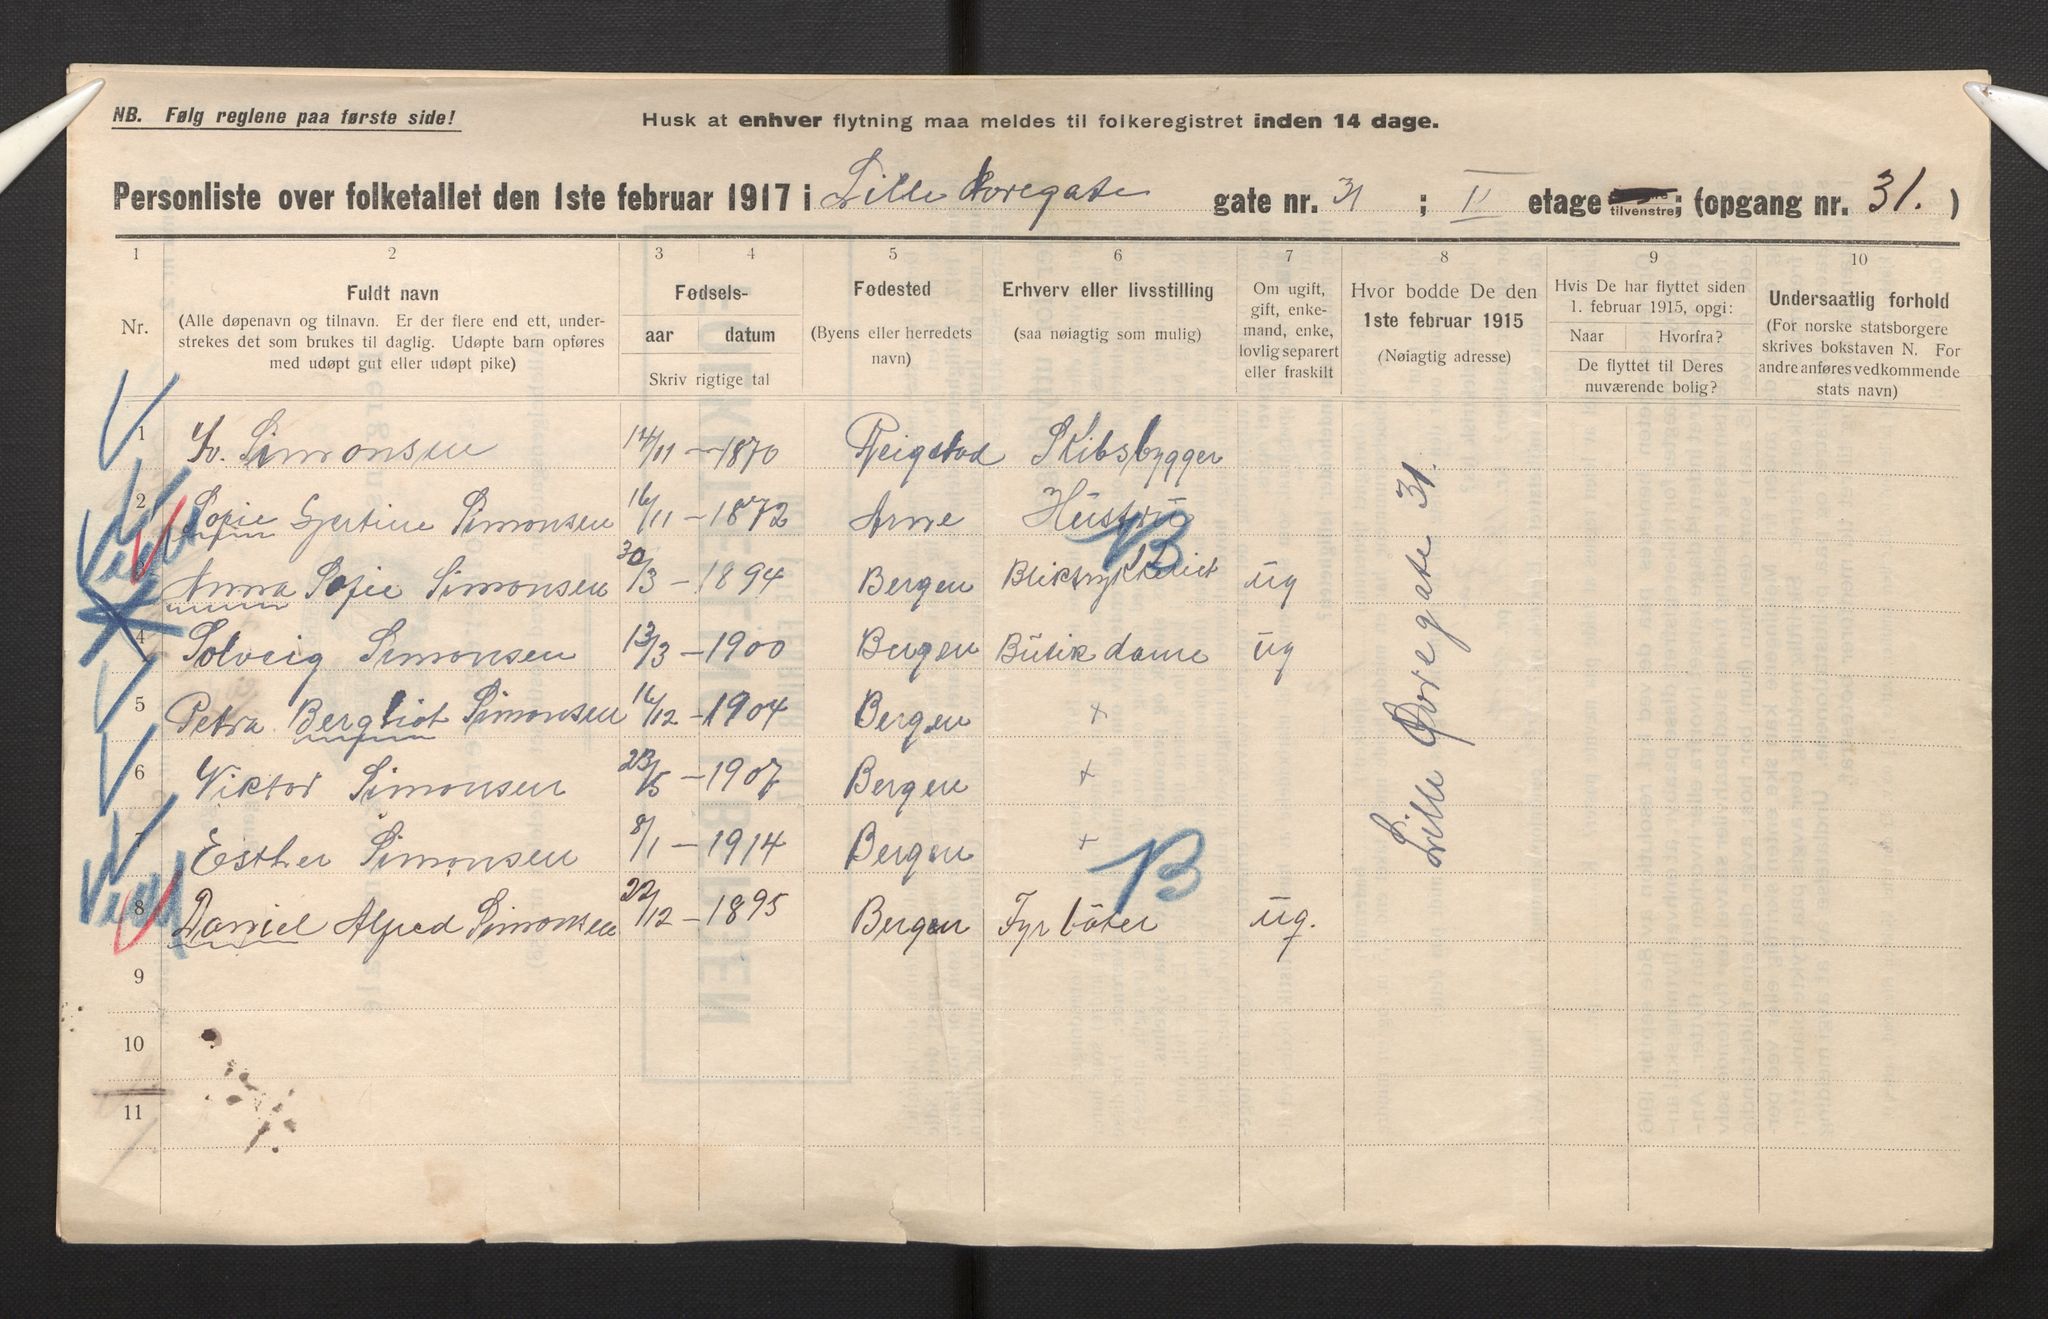 NB. Følg reglene paa første side!
Husk at enhver flytning maa meldes til folkeregistret inden 14 dage.
Personliste over folketallet den 1ste februar 1917 i Lille Øvregate gate nr. 31 ; II etage tilvenstre; (opgang nr. 31. )
1 2 3 4 5 6 7 8 9 10
Nr.
Fuldt navn
(Alle døpenavn og tilnavn. Er der flere end ett, under-
strekes det som brukes til daglig. Udøpte barn opføres
med udøpt gut eller udøpt pike)
Fødsels-
aar datum
Skriv rigtige tal
Fødested
(Byens eller herredets
navn)
Erhverv eller livsstilling
(saa nøiagtig som mulig)
Om ugift,
gift, enke-
mand, enke,
lovlig separert
eller fraskilt
Hvor bodde De den
1ste februar 1915
(Nøiagtig adresse)
Hvis De har flyttet siden
1. februar 1915, opgi:
Naar Hvorfra?
De flyttet til Deres
nuværende bolig?
Undersaatlig forhold
(For norske statsborgere
skrives bokstaven N. For
andre anføres vedkommende
stats navn)
1 Simonsen 14/11 - 1870 Reigstad Skibsbygger
2 Sofie Gjertine Simonsen 16/11 - 1872 Arne Hustru
3 Anna Sofie Simonsen 30/3 - 1894 Bergen Bliktrykkeriet ug
B
4 Solveig Simonsen 13/3 - 1900 Bergen Butik dame ug
5 Petra Bergliot Simonsen 16/12 - 1904 Bergen +
6 Viktor Simonsen 23/5 - 1907 Bergen +
7 Esther Simonsen 8/1 - 1914 Bergen +
8 Daniel Alfred Simonsen 22/12 - 1895 Bergen Fyrbøter ug.
B
Lille Øvregate 31.
9
10
11